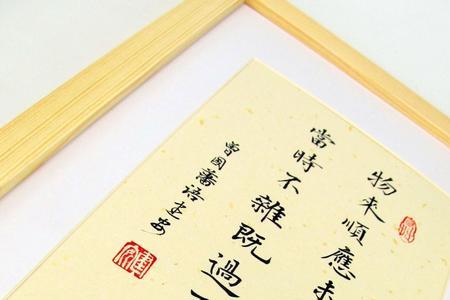 物來順應未
當時不雜既過
曾國藩語建安